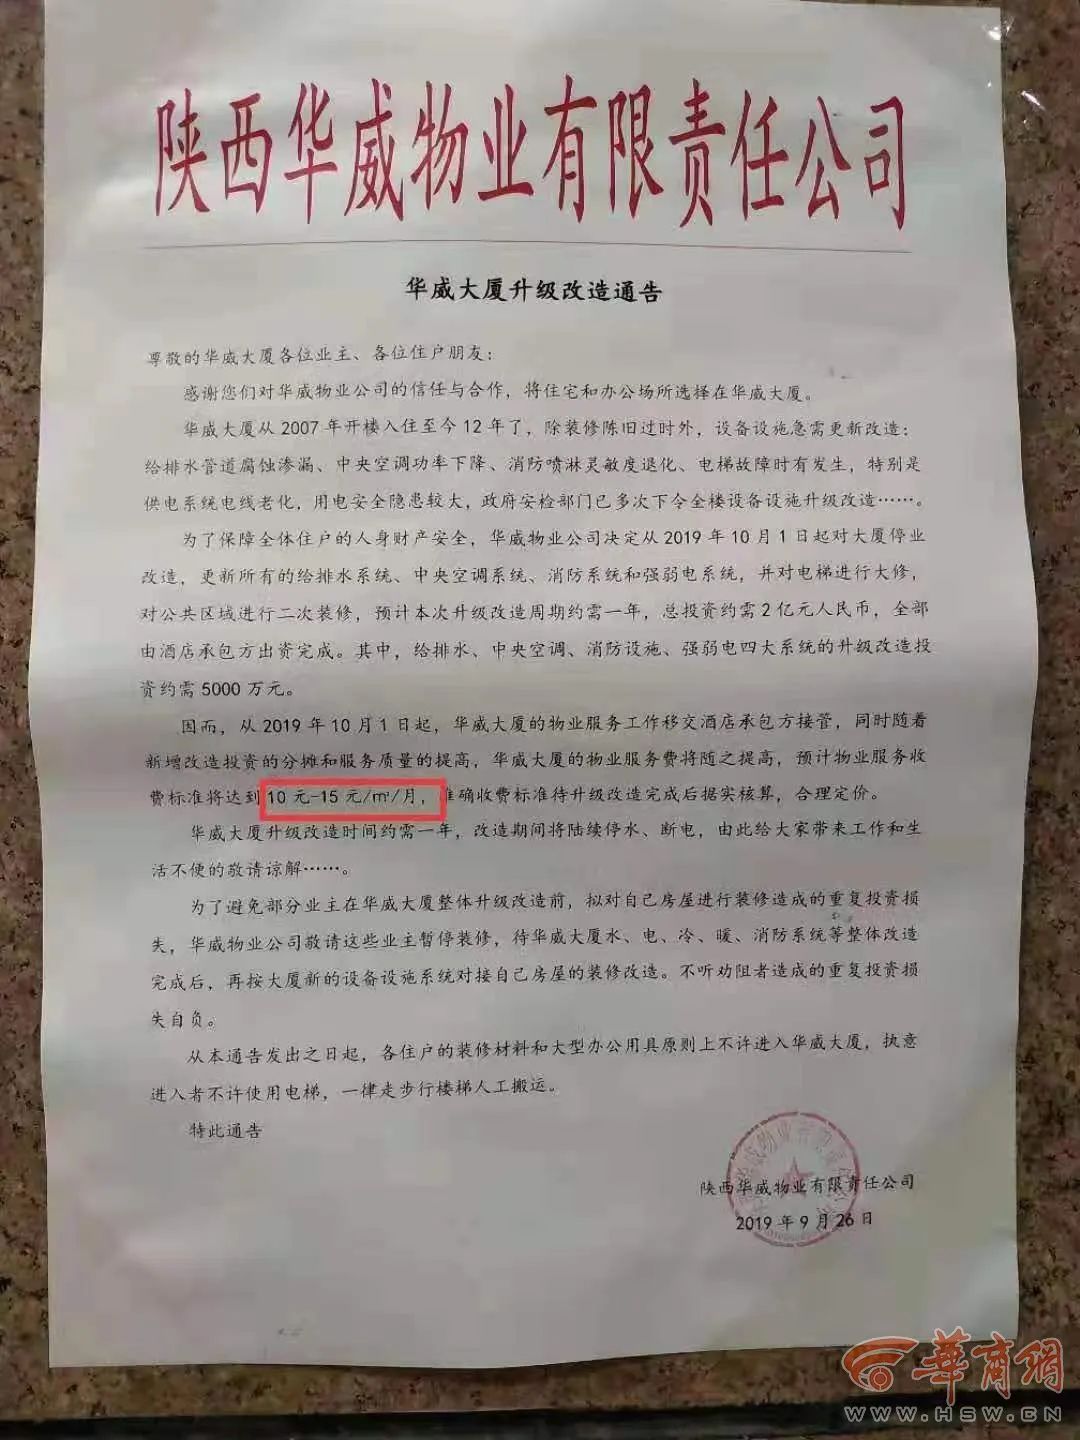 陕西华威物业有限责任公司
华威大厦升级改造通告
尊敬的华威大厦各位业主、各位住户朋友：
感谢您们对华威物业公司的信任与合作，将住宅和办公场所选择在华威大厦。
华威大厦从2007年开楼入住至今12年了，除装修陈旧过时外，设备设施急需更新改造：
给排水管道腐蚀渗漏、中央空调功率下降、消防喷淋灵敏度退化、电梯故障时有发生，特别是
供电系统电线老化，用电安全隐患较大，政府安检部门已多次下令全楼设备设施升级改造……。
为了保障全体住户的人身财产安全，华威物业公司决定从2019年10月1日起对大厦停业
改造，更新所有的给排水系统、中央空调系统、消防系统和强弱电系统，并对电梯进行大修，
对公共区域进行二次装修，预计本次升级改造周期约需一年，总投资约需2亿元人民币，全部
由酒店承包方出资完成。其中，给排水、中央空调、消防设施、强弱电四大系统的升级改造投
资约需5000万元。
因而，从2019年10月1日起，华威大厦的物业服务工作移交酒店承包方接管，同时随着
新增改造投资的分摊和服务质量的提高，华威大厦的物业服务费将随之提高，预计物业服务收
费标准将达到10元-15元/㎡/月，准确收费标准待升级改造完成后据实核算，合理定价。
华威大厦升级改造时间约需一年，改造期间将陆续停水、断电，由此给大家带来工作和生
活不便的敬请谅解……。
为了避免部分业主在华威大厦整体升级改造前，拟对自己房屋进行装修造成的重复投资损
失，华威物业公司敬请这些业主暂停装修，待华威大厦水、电、冷、暖、消防系统等整体改造
完成后，再按大厦新的设备设施系统对接自己房屋的装修改造。不听劝阻者造成的重复投资损
失自负。
从本通告发出之日起，各住户的装修材料和大型办公用具原则上不许进入华威大厦，执意
进入者不许使用电梯，一律走步行楼梯人工搬运。
特此通告
陕西华威物业有限责任公司
2019年9月26日
華商網
WWW.HSW.CN